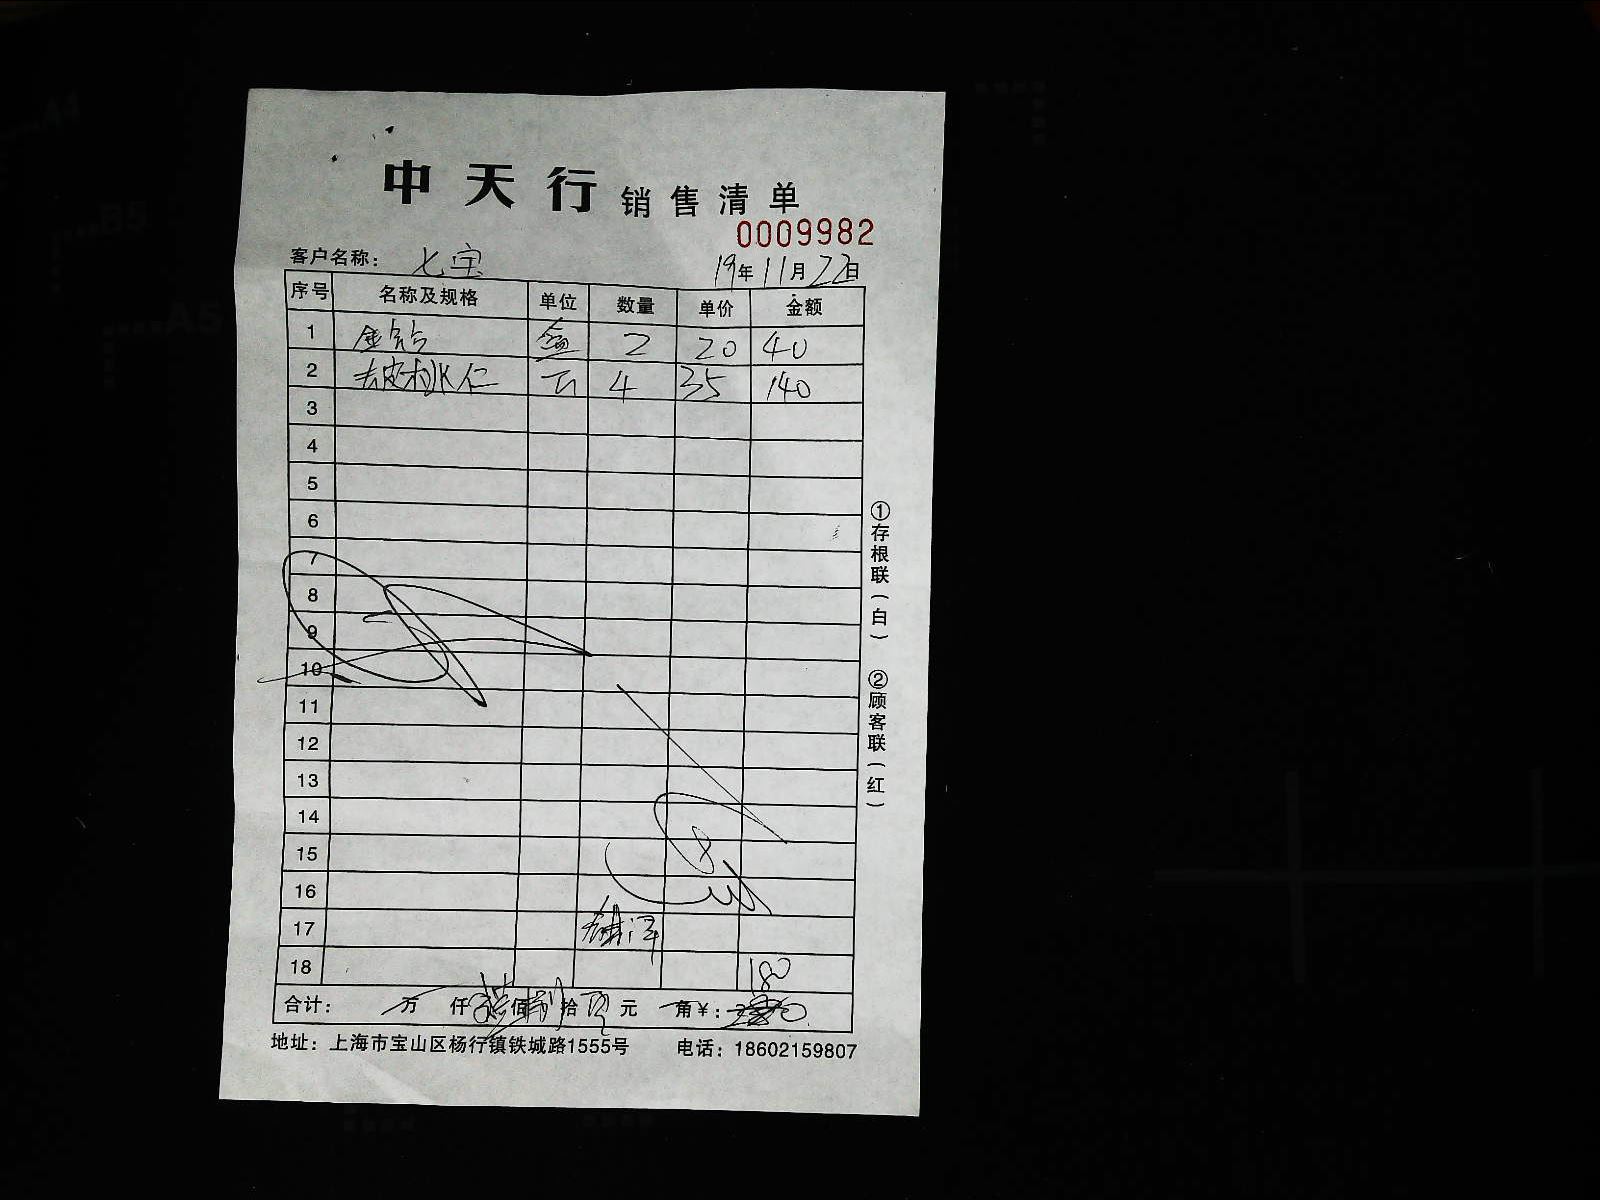 中天行 销售清单
0009982
客户名称： 七宝 19年11月22日
序号 名称及规格 单位 数量 单价 金额
1 金钻 盒 2 20 40
2 去皮桃仁 斤 4 35 140
3
4
5
6
7
8
9
10
11
12
13
14
15
16
17
18 180
合计： 万 仟 佰 拾 元 角 ¥：
地址：上海市宝山区杨行镇铁城路1555号 电话：18602159807
①存根联（白） ②顾客联（红）